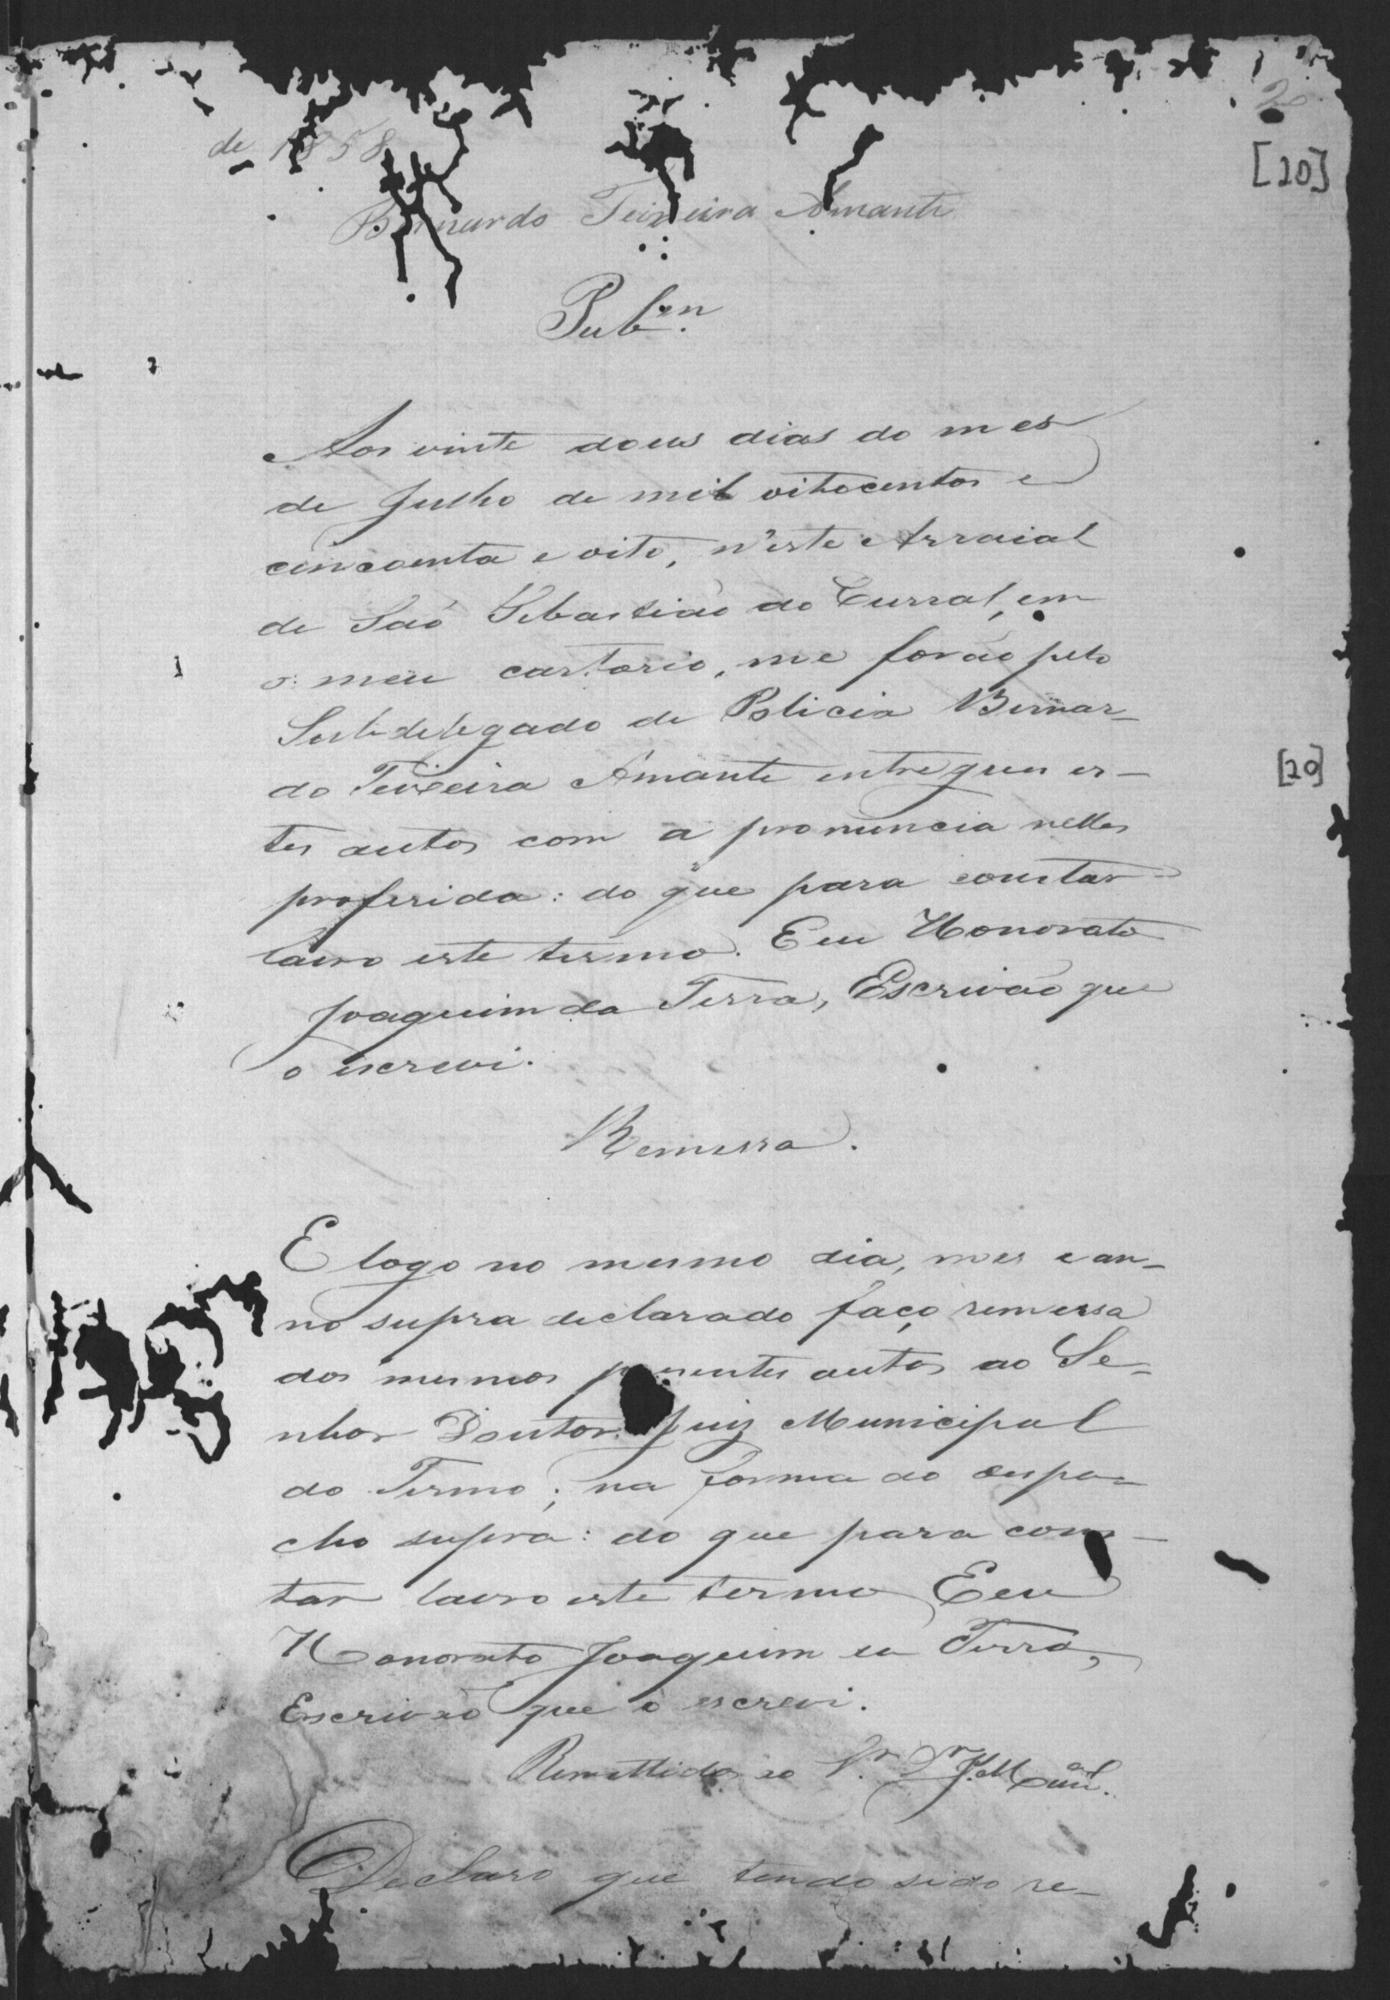 20
[20]
de 1858
Bernardo Teixeira Amante
Pub.m
Aos vinte dous dias do mes
de Julho de mil oitocentos e
cincoenta e oito, n'este Arraial
de São Sebastião do Curral, em
o meu cartorio, me forão pelo
Subdelegado de Policia Bernar-
do Teixeira Amante entregues es-
[20]
tes autos com a pronuncia nelles
proferida: do que para constar
lavro este termo. Eeu Honorato
Joaquim da Terra, Escrivão que
o escrevi.
Remessa.
E logo no mesmo dia, mes e an-
no supra declarado faço remessa
dos mesmos presentes autos ao Se-
nhor Doutor Juiz Municipal
do Termo; na forma do despa-
cho supra: do que para cons-
tar lavro este termo Eeu
Honorato Joaquim da Terra,
Escrivão que o escrevi.
Remettidos ao Sr. Dr. J. M.
Declaro que tendo sido re-